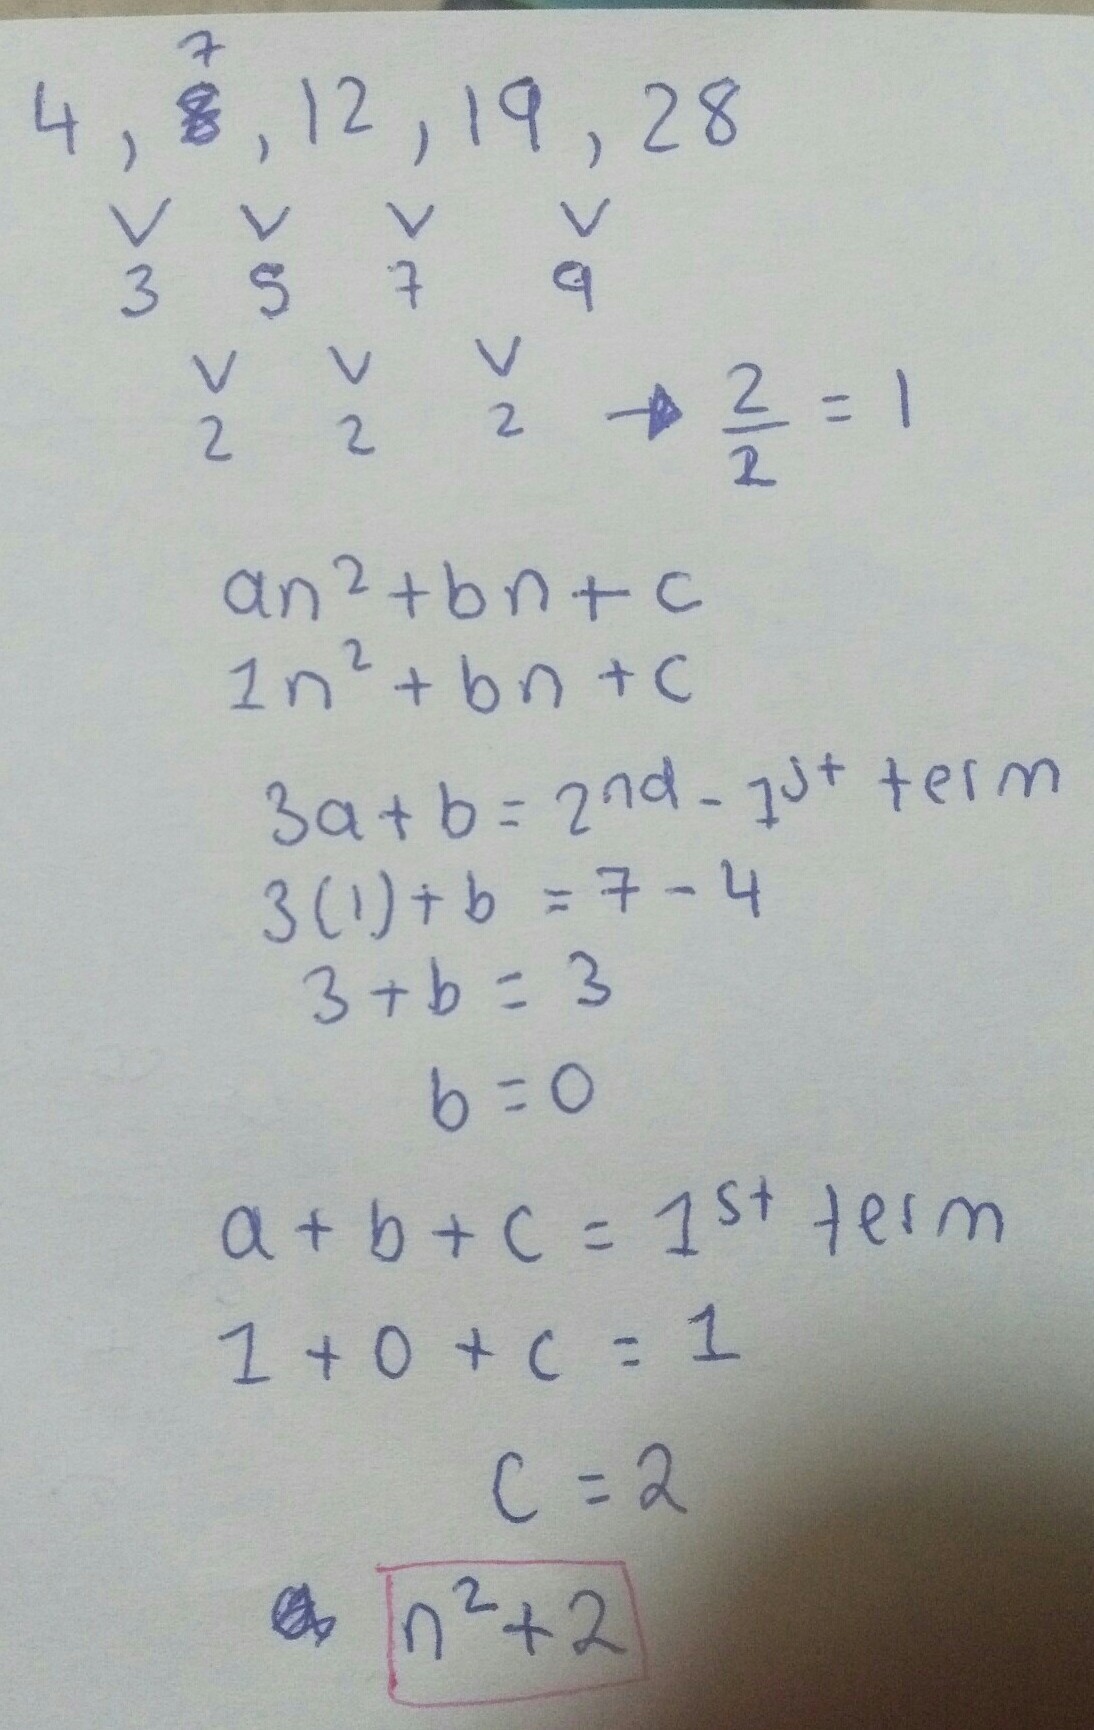 7
4, 8, 12, 19, 28
V V V V
3 5 7 9
V V V
2 2 2 → 2/2 = 1
an² + bn + c
1n² + bn + c
3a + b = 2nd - 1st term
3(1) + b = 7 - 4
3 + b = 3
b = 0
a + b + c = 1st term
1 + 0 + c = 1
C = 2
n² + 2